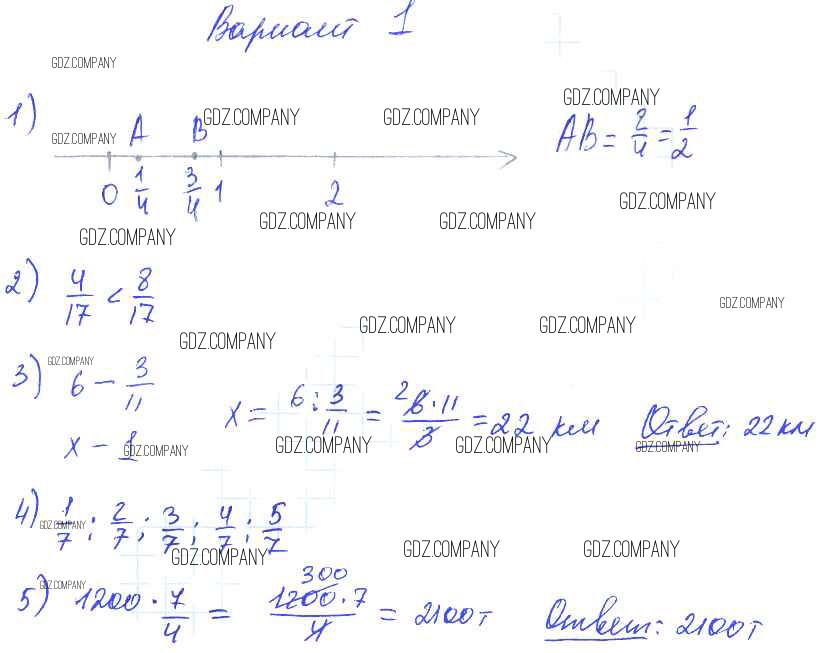 Вариант 1
GDZ.COMPANY
1) GDZ.COMPANY A B GDZ.COMPANY GDZ.COMPANY GDZ.COMPANY
AB = 2/4 = 1/2
0 1/4 3/4 1 2
GDZ.COMPANY GDZ.COMPANY GDZ.COMPANY GDZ.COMPANY
2) 4/17 < 8/17
GDZ.COMPANY
GDZ.COMPANY GDZ.COMPANY GDZ.COMPANY
3) GDZ.COMPANY 6 – 3/11
x = 6 : 3/11 = 2 6·11/3 = 22 км Ответ: 22 км
x – 1 GDZ.COMPANY GDZ.COMPANY GDZ.COMPANY GDZ.COMPANY
4) GDZ.COMPANY 1/7; 2/7; 3/7; 4/7; 5/7
GDZ.COMPANY GDZ.COMPANY GDZ.COMPANY
5) GDZ.COMPANY 1200 · 7/4 = 300 1200·7/4 = 2100 т Ответ: 2100 т